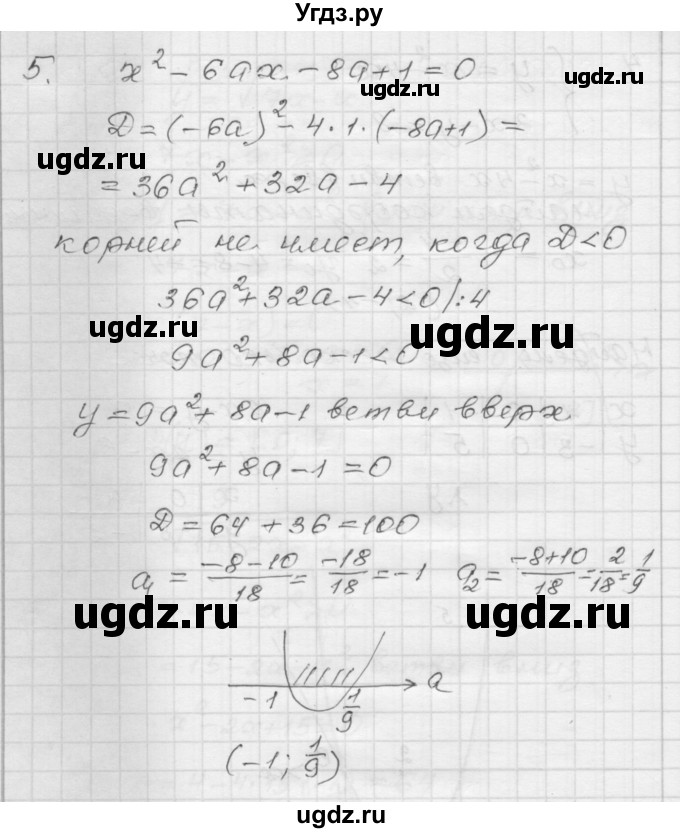 Угдз.ру
5. x² - 6ax - 8a + 1 = 0
ugdz.ru
ugdz.ru
D = (-6a)² - 4 · 1 · (-8a+1) =
ugdz.ru
= 36a² + 32a - 4
корней не имеет, когда D < 0
36a² + 32a - 4 < 0 /:4
ugdz.ru
ugdz.ru
9a² + 8a - 1 < 0
y = 9a² + 8a - 1 ветви вверх.
9a² + 8a - 1 = 0
ugdz.ru
D = 64 + 36 = 100
a₁ = (-8-10)/18 = -18/18 = -1 a₂ = (-8+10)/18 = 2/18 = 1/9
ugdz.ru
ugdz.ru
-1 1/9 a
(-1; 1/9)
ugdz.ru
ugdz.ru
ugdz.ru